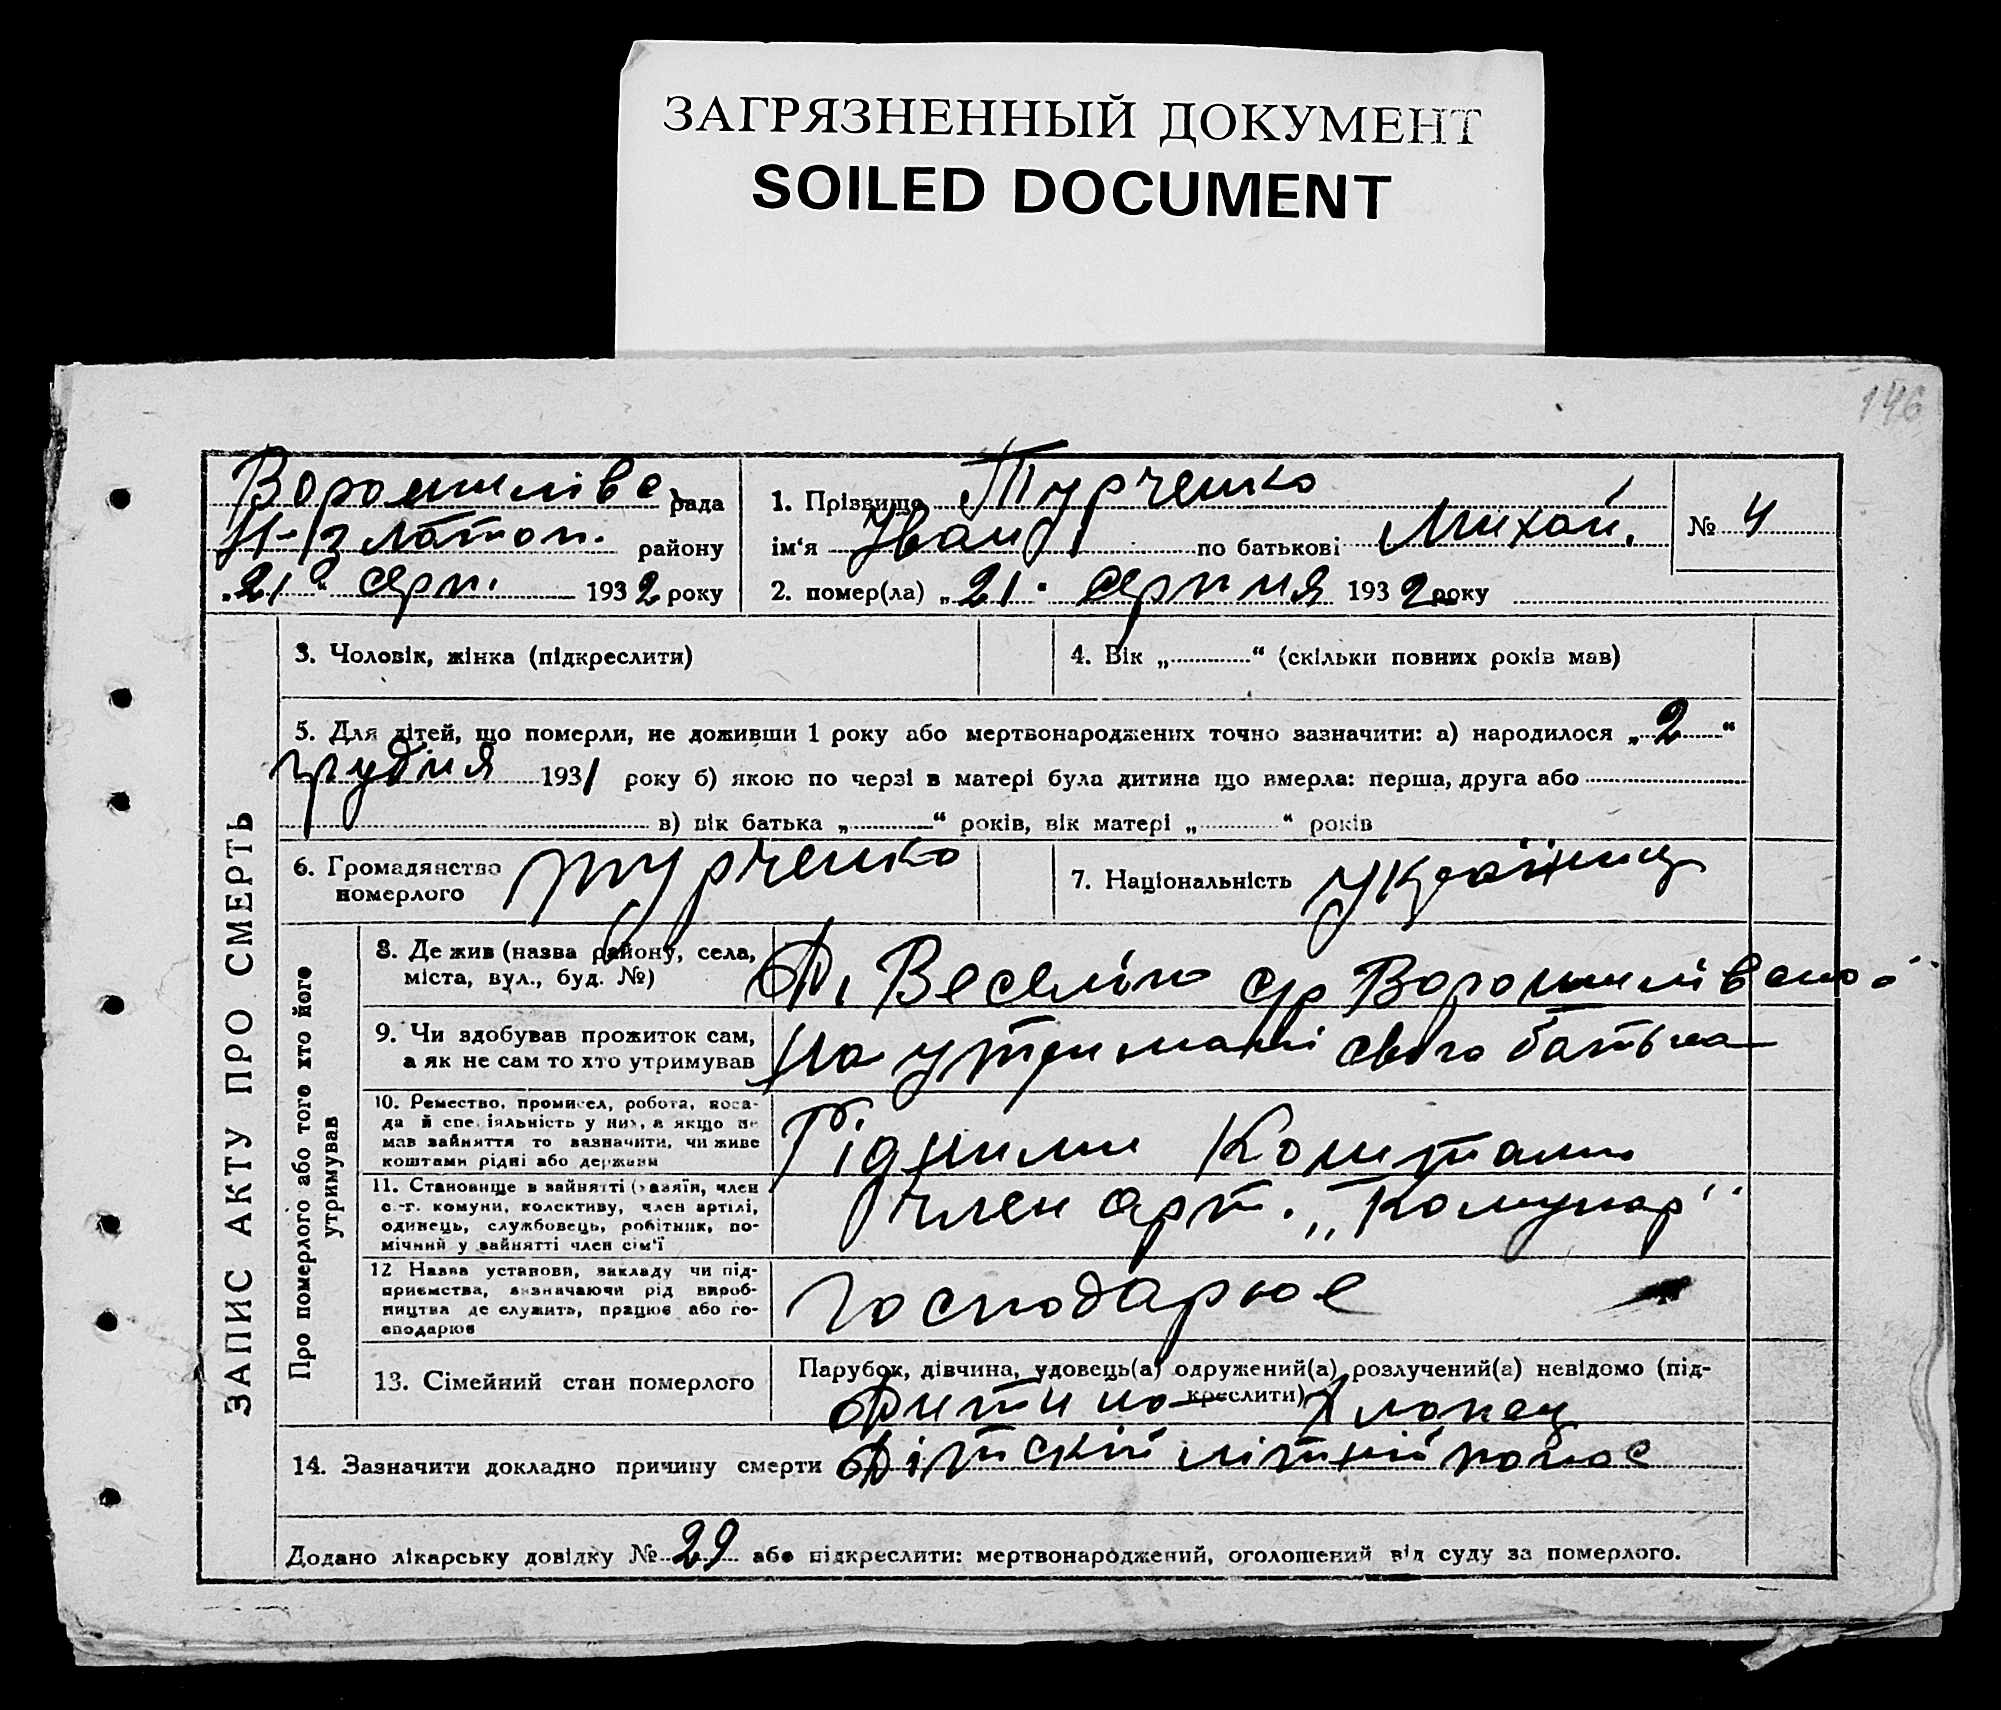 ЗАГРЯЗНЕННЫЙ ДОКУМЕНТ
SOILED DOCUMENT
146
рада
району
21 серп. 1932 року
1. Прізвище Турченко
ім'я Іван по батькові Михай.
2. помер(ла) „21" серпня 1932 року
№ 4
ЗАПИС АКТУ ПРО СМЕРТЬ
3. Чоловік, жінка (підкреслити)
4. Вік „............“ (скільки повних років мав)
5. Для дітей, що померли, не доживши 1 року або мертвонароджених точно зазначити: а) народилося „2“
грудня 1931 року б) якою по черзі в матері була дитина що вмерла: перша, друга або
в) вік батька „............“ років, вік матері „............“ років
6. Громадянство
померлого
Турченко
7. Національність українец
Про померлого або того хто його
утримував
8. Де жив (назва району, села,
міста, вул., буд. №)
9. Чи здобував прожиток сам,
а як не сам то хто утримував
На утриманні свого батька
10. Ремество, промисел, робота, поса-
да й спеціяльність у них, а якщо не
мав зайняття то зазначити, чи живе
коштами рідні або держави
Рідними Коштами
11. Становище в зайнятті (хазяїн, член
с.-г. комуни, колективу, член артілі,
одинець, службовець, робітник, по-
мічний у зайнятті член сім'ї
член арт. „Комунар"
12 Назва установи, закладу чи під-
приємства, визначаючи рід вироб-
ництва де служить, працює або го-
сподарює
Господарює
13. Сімейний стан померлого
Парубок, дівчина, удовець(а) одружений(а) розлучений(а) невідомо (під-
креслити)
Дитина Хлопец
14. Зазначити докладно причину смерти Дітскій літній понос
Додано лікарську довідку № 29 або підкреслити: мертвонароджений, оголошений від суду за померлого.